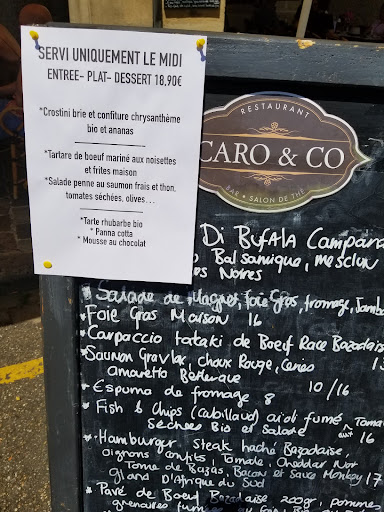 SERVI UNIQUEMENT LE MIDI
ENTREE- PLAT- DESSERT 18,90€
*Crostini brie et confiture chrysanthème
bio et ananas
*Tartare de boeuf mariné aux noisettes
et frites maison
*Salade penne au saumon frais et thon,
tomates séchées, olives...
*Tarte rhubarbe bio
* Panna cotta
* Mousse au chocolat
RESTAURANT
CARO & CO
BAR • SALON DE THÉ
Di Bufala Campana
Balsamique, mesclun
Noires
Salade de Magret, foie Gras, fromage, Jamb
Foie Gras Maison 16
Carpaccio tataki de Boeuf Race Bazadaise
Saumon Gravlax, choux Rouge,
amaretto Betterave
Espuma de fromage 8 10/16
Fish & Chips (Cabillaud) aioli fumé, Toma
Séchées Bio et Salade 16
Hamburger steak haché Bazadaise,
oignons confits, Tomate, Cheddar Noir
Tome de Bazas, Bacon et Sauce Monkey 17
Gland D'Afrique du Sud
Pavé de Boeuf Bazadaise 200gr, pommes
grenailles